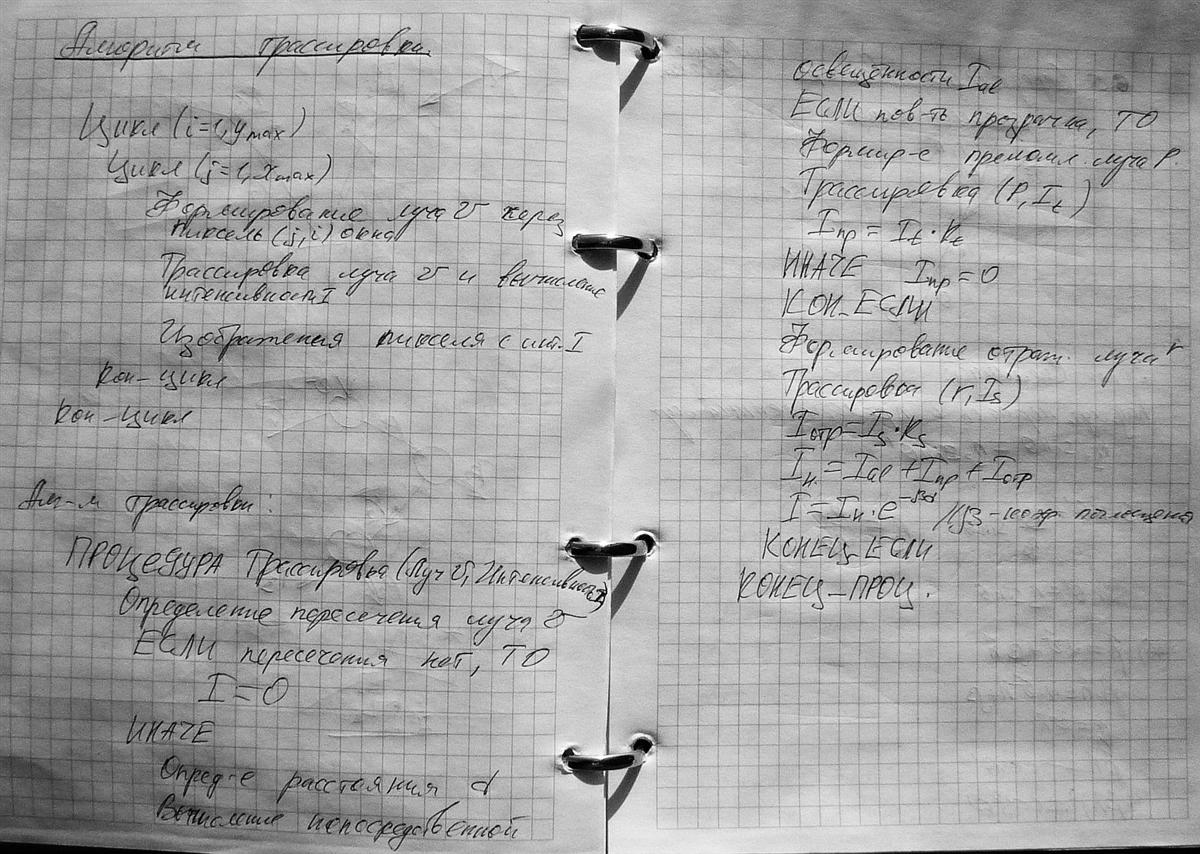 Алгоритм трассировки.
Цикл (i=1, y max)
Цикл (j=1, x max)
Формирование луча v через
пиксель (j, i) окна
Трассировка луча v и вычисление
интенсивности I
Изображения пикселя с инт. I
Кон-цикл
Кон-цикл
Ал-м трассировки:
ПРОЦЕДУРА Трассировка (Луч v, Интенсивность I)
Определение пересечения луча v
ЕСЛИ пересечения нет, ТО
I=0
ИНАЧЕ
Опред-е расстояния d
Вычисление непосредственной
освещённости Ial
ЕСЛИ пов-ть прозрачна, ТО
Формир-е преломл. луча P.
Трассировка (P, It)
Iпр = It·Kt
ИНАЧЕ Iпр=0
КОН_ЕСЛИ
Формирование отраж. луча r
Трассировка (r, Is)
Iотр=Is·Ks
Iн.=Ial+Iпр+Iотр
I=Iн·e^-βd //β-коэф. поглощения
КОНЕЦ_ЕСЛИ
КОНЕЦ_ПРОЦ.